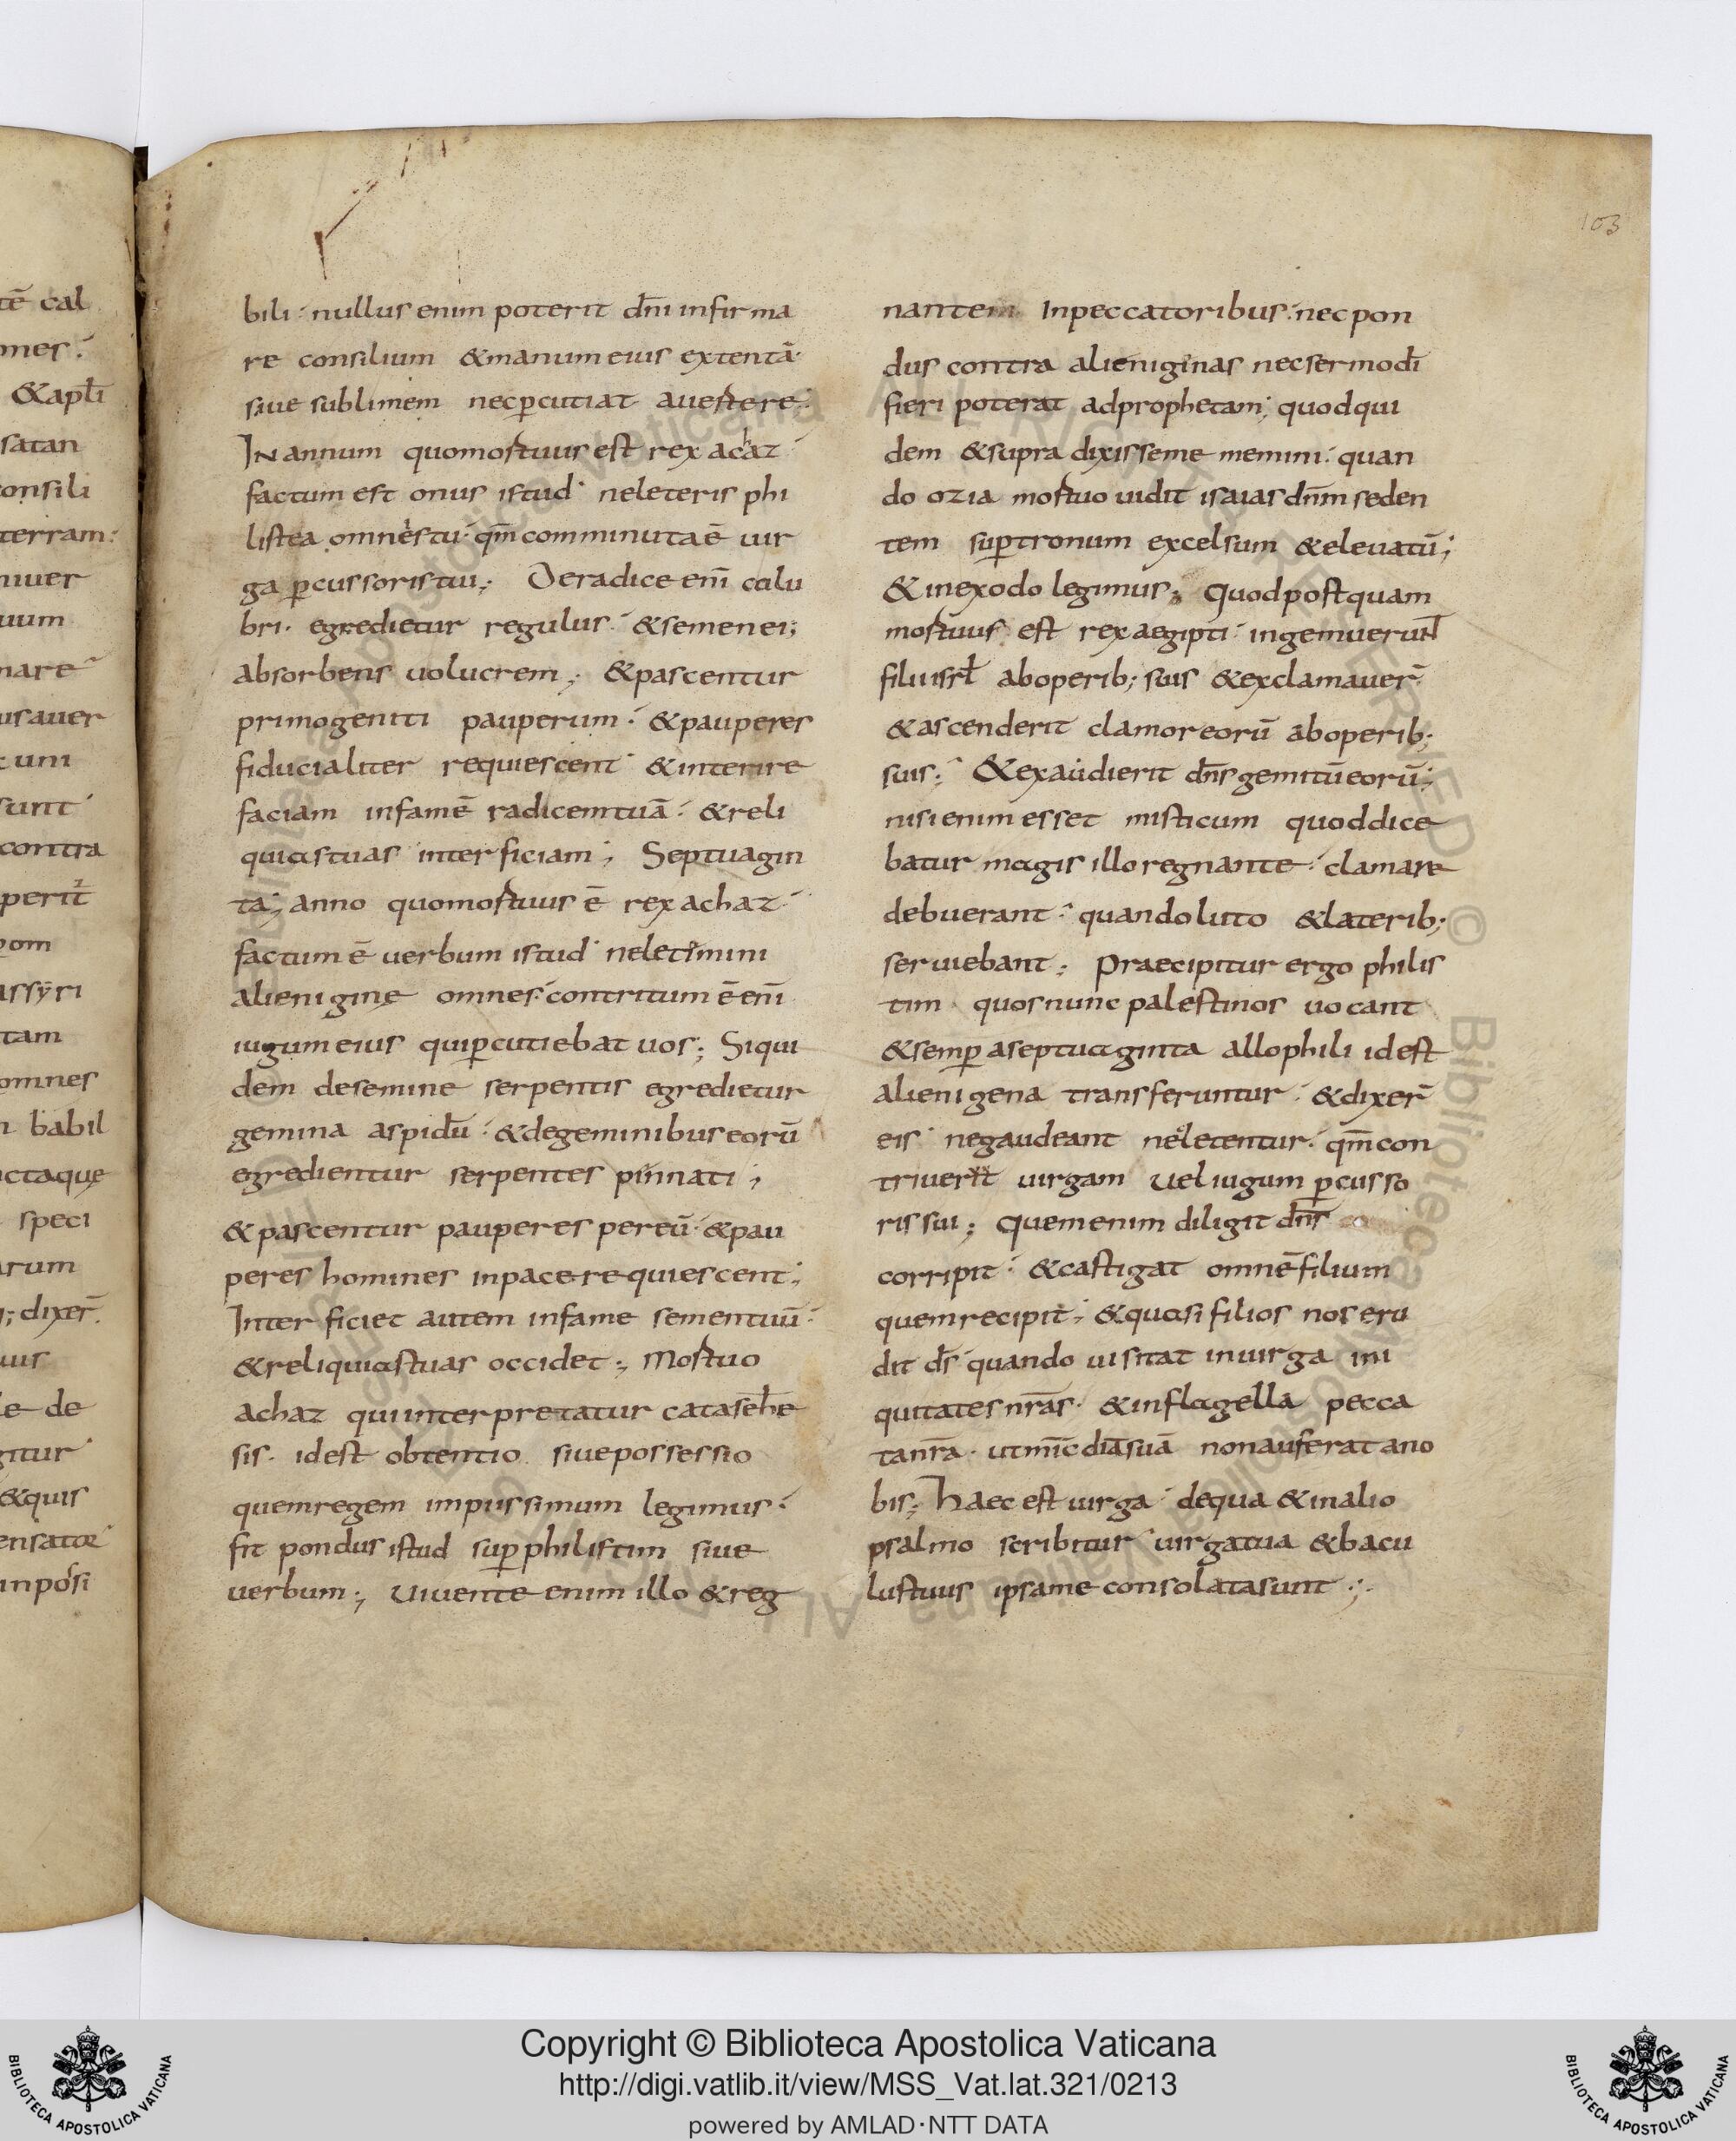 103
tē cal
mes
& apłi
satan
onsili
terram
niuer
uum
nare
usauer
tuni
sunt
contra
perit
assyri
tam
omnes
babil
ctaque
speci
arum
dixer̄
uus
le de
gitur
& quis
ensatoe
inposi
bili. nullus enim poterit dn̄i infirma
re consilium & manum eius extentā
siue sublimem nec ꝑcutiat auertere.
In annum quo mortuus est rex achaz
factum est onus istud neleteris phi
listea omnes tu. qm̄ comminuta ē uir
ga ꝑcussoris tui; De radice eni͞ colu
bri. egredietur regulus. & semen ei;
absorbens uolucrem; & pascentur
primogeniti pauperum. & pauperes
fiducialiter requiescent & interire
faciam in famē radicem tuā. & reli
quias tuas interficiam; Septuagin
ta; anno quo mortuus ē rex achaz.
factum ē uerbum istud neletimini
alienigine omnes. contritum ē eni͞
iugum eius qui ꝑcutiebat uos; Siqui
dem de semine serpentis egredietur
gemina aspidū. & de geminibus eorū
egredientur serpentes pinnati;
& pascentur pauperes per eū. & pau
peres homines in pace requiescent;
Interficiet autem in fame semen tuū.
& reliquias tuas occidet; Mortuo
achaz qui interpretatur catasehe
sis. id est obtentio siue possessio
quem regem impiissimum legimus.
fit pondus istud suꝑ philistim siue
uerbum; Uiuente enim illo & reg
nantem In peccatoribus. nec pon
dus contra alieniginas nec sermo dī
fieri poterat ad prophetam; quod qui
dem & supra dixisse me memini. quan
do ozia mortuo uidit isaias dn̄m seden
tem suꝑ tronum excelsum & eleuatū;
& in exodo legimus; Quod postquam
mortuus est rex aegipti. ingemuerunt
filii isrł ab operib; suis & exclamauer̄
& ascenderit clamor eorū ab operib;
suis; & exaudierit dn̄s gemitū eorū;
nisi enim esset misticum quod dice
batur magis illo regnante. clamare
debuerant. quando luto & laterib;
seruiebant; Praecipitur ergo philis
tim quos nunc palestinos uocant
& semꝑ a septuaginta allophili id est
alienigena transferuntur. & dixer̄
eis ne gaudeant neletentur. qm̄ con
triuerit uirgam uel iugum ꝑcusso
ris sui; Quem enim diligit dn̄s
corripit. & castigat omnē filium
quem recipit; & quasi filios nos eru
dit ds̄ quando uisitat in uirga ini
quitates nr̄as. & in flagella pecca
ta nr̄a. ut mīcdiā suā non auferat a no
bis; Haec est uirga de qua & in alio
psalmo scribitur uirga tua & bacu
lus tuus ipsa me consolata sunt;
Copyright © Biblioteca Apostolica Vaticana
http://digi.vatlib.it/view/MSS_Vat.lat.321/0213
powered by AMLAD·NTT DATA
BIBLIOTECA APOSTOLICA VATICANA
BIBLIOTECA APOSTOLICA VATICANA